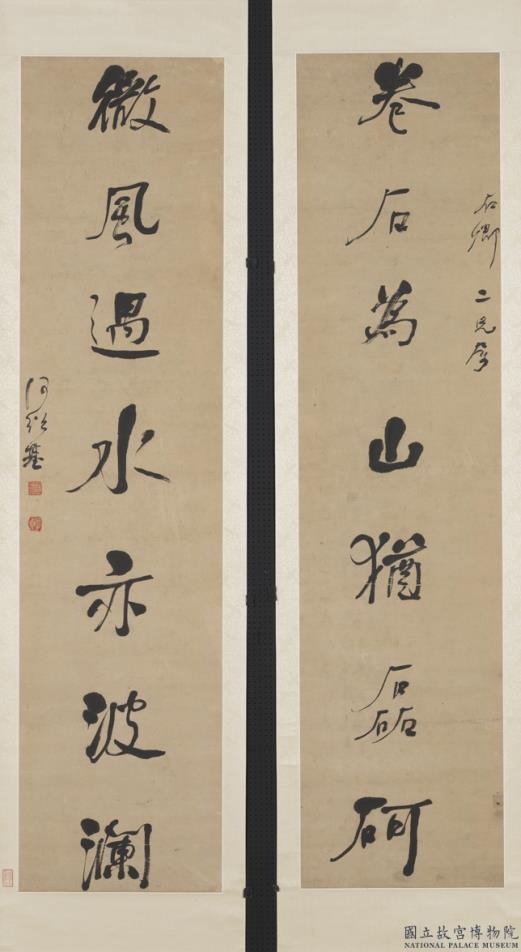 石卿二兄屬
卷石為山猶磊砢
微風過水亦波瀾
何紹基
國立故宮博物院
NATIONAL PALACE MUSEUM